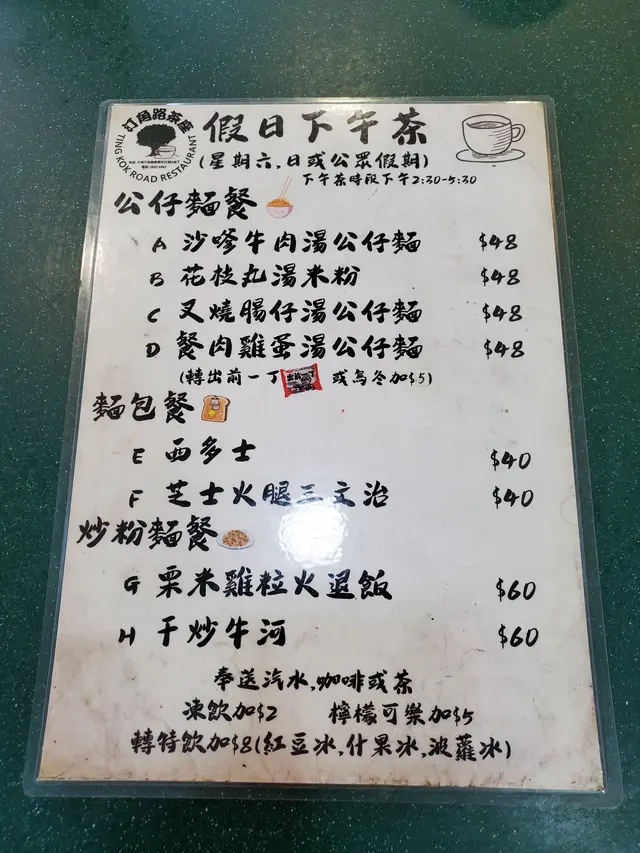 汀角路茶座
TING KOK ROAD RESTAURANT
假日下午茶
(星期六,日或公眾假期)
下午茶時段下午2:30-5:30
公仔麵餐
A 沙嗲牛肉湯公仔麵 $48
B 花枝丸湯米粉 $48
C 叉燒腸仔湯公仔麵 $48
D 餐肉雞蛋湯公仔麵 $48
(轉出前一丁 或烏冬加$5)
麵包餐
E 西多士 $40
F 芝士火腿三文治 $40
炒粉麵餐
G 粟米雞粒火退飯 $60
H 干炒牛河 $60
奉送汽水,咖啡或茶
凍飲加$2 檸檬可樂加$5
轉特飲加$8(紅豆冰,什果冰,波蘿冰)